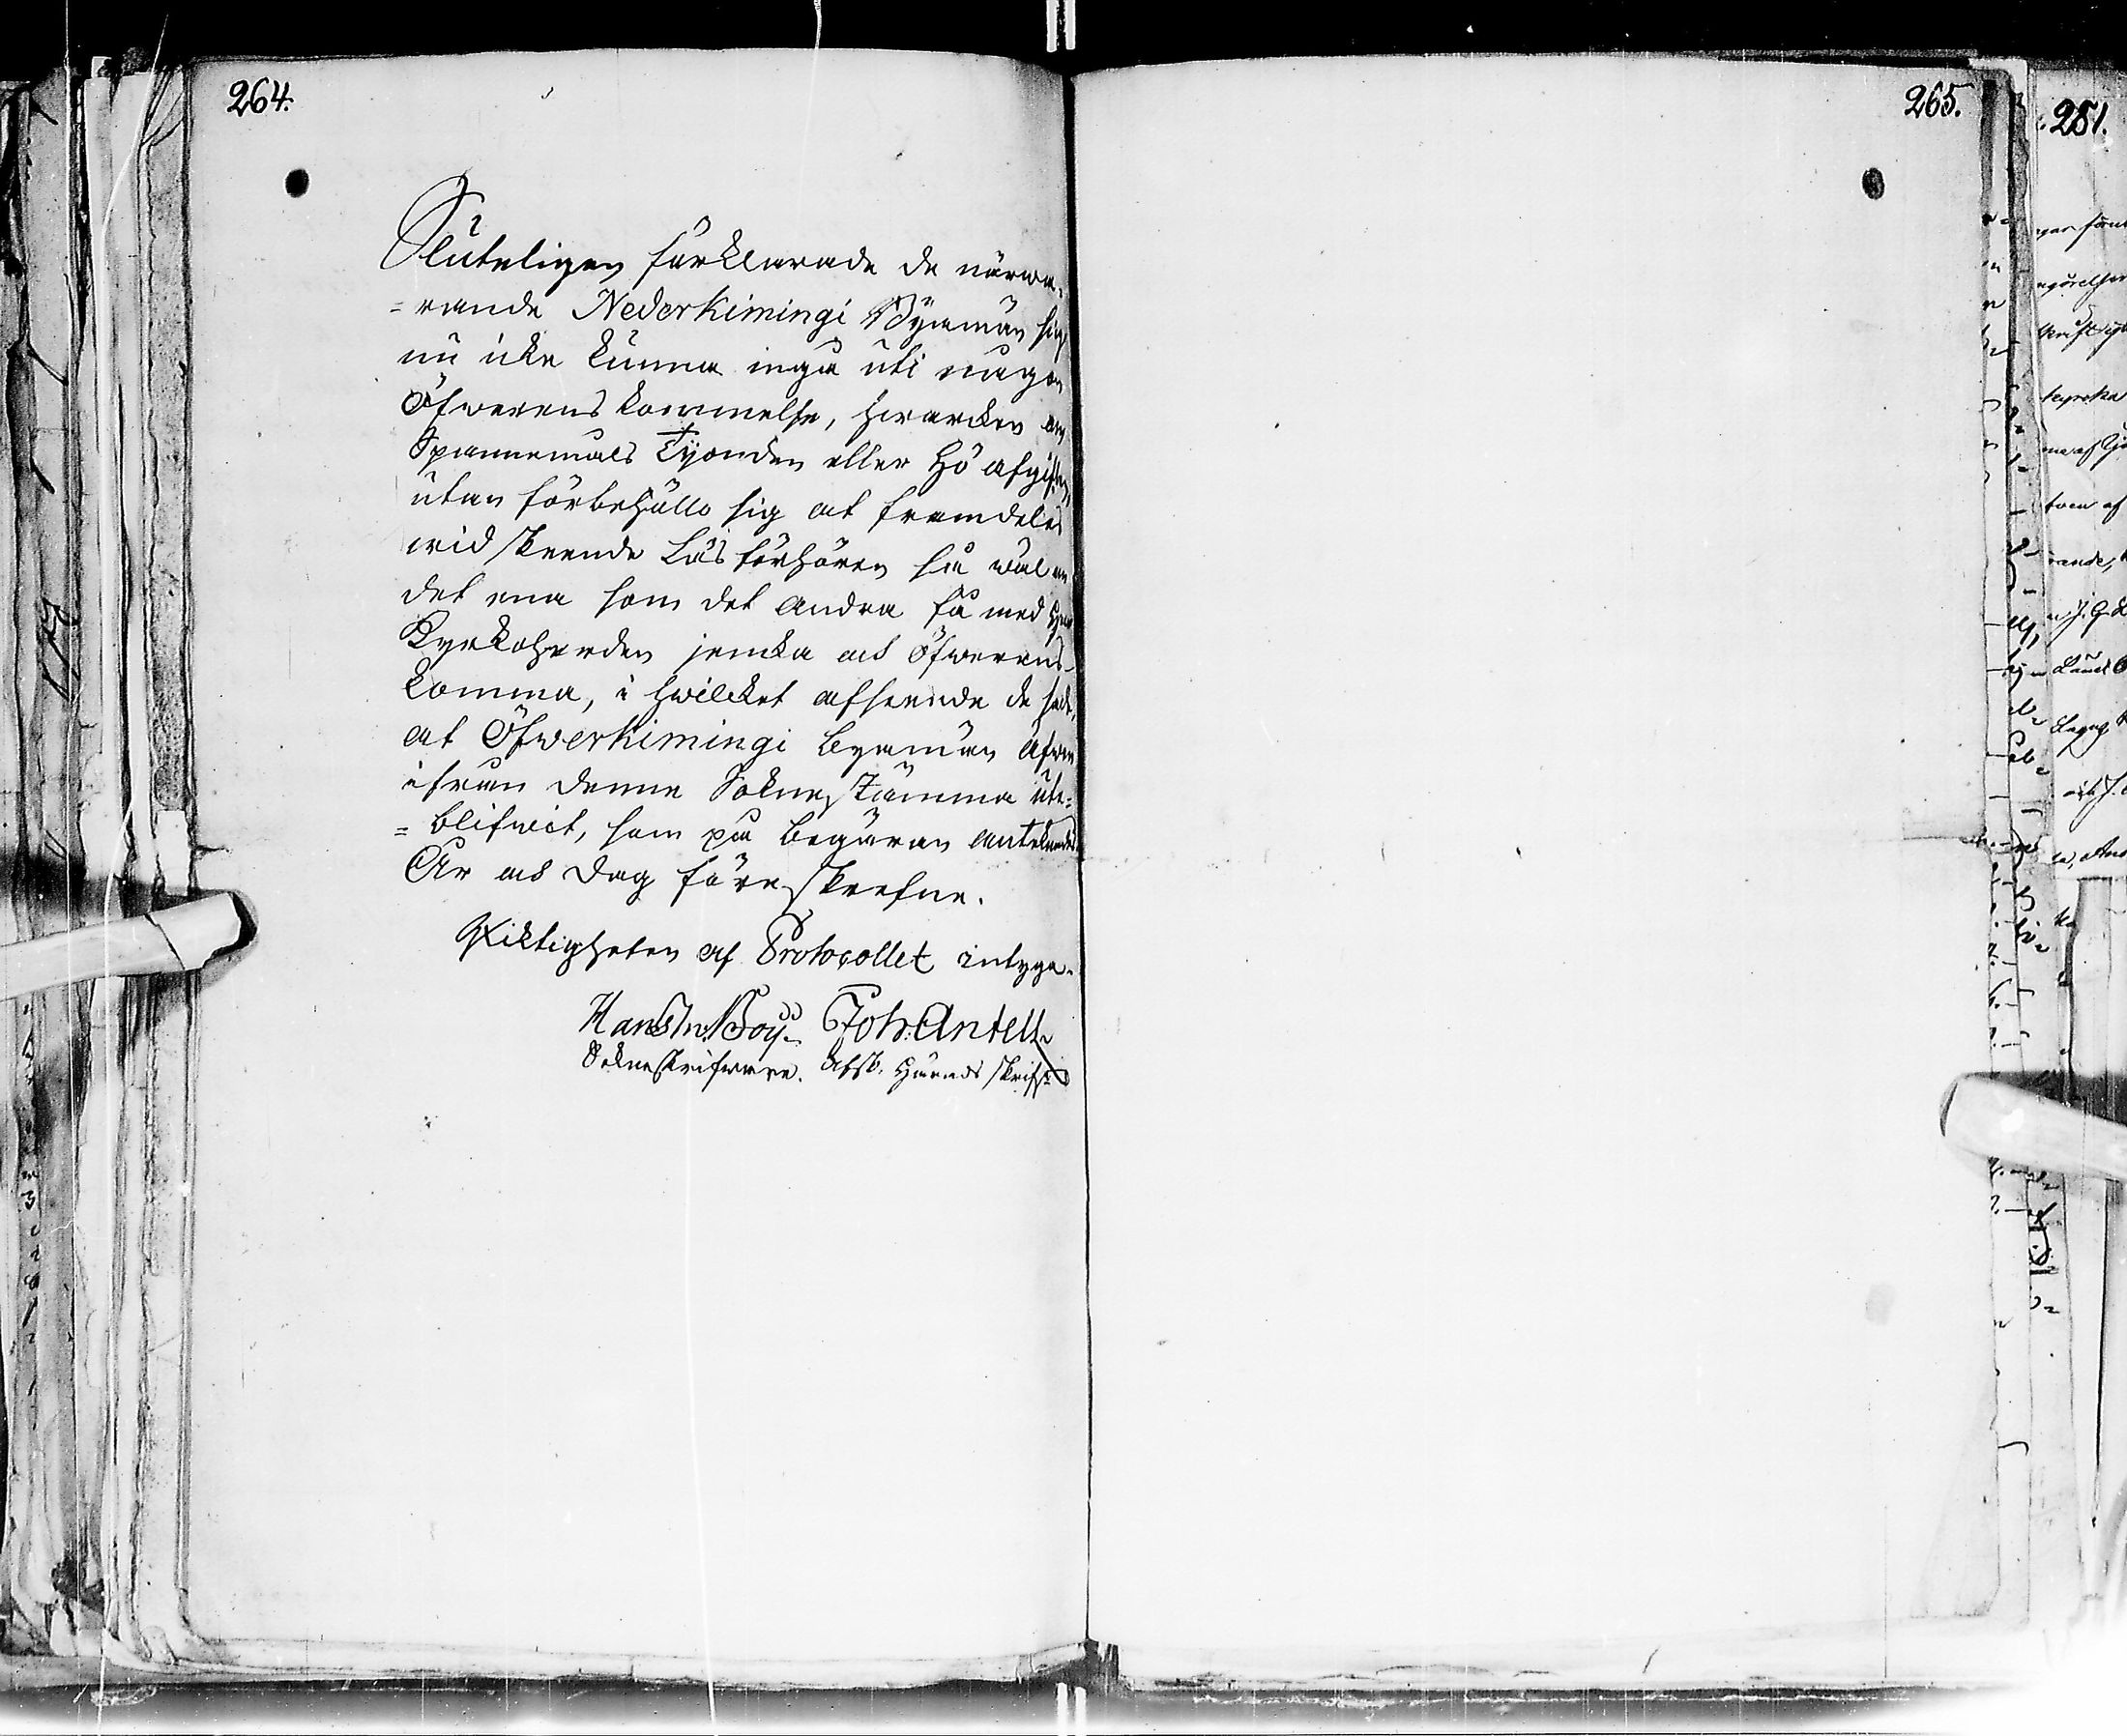 264.
Sluteligen förklarade de närwa-
=rande Nederkimingi Byamän sig
nu icke kunna ingå uti någon
Öfwerenskommelse, hwarcken om
Spannemåls Tijonden eller Hö afgiften,
utan förbehållo sig at framdeles
wid skeende Läsförhören så wäl om
det ena som det andra få med Herr
Kyrkoherden jemka och öfwerens-
komma, i hwilcket afseende de sade,
at Öfwerkimingi byamän äfwen
ifrån denne Sokne Stämma ute=
=blifwit, som på begäran antecknades
År och dag föreskrefne.
Ricktigheten af Protocollet intyga.
Joh: Antell
Sokneskrifware. Härads skrifw:
265.
281.